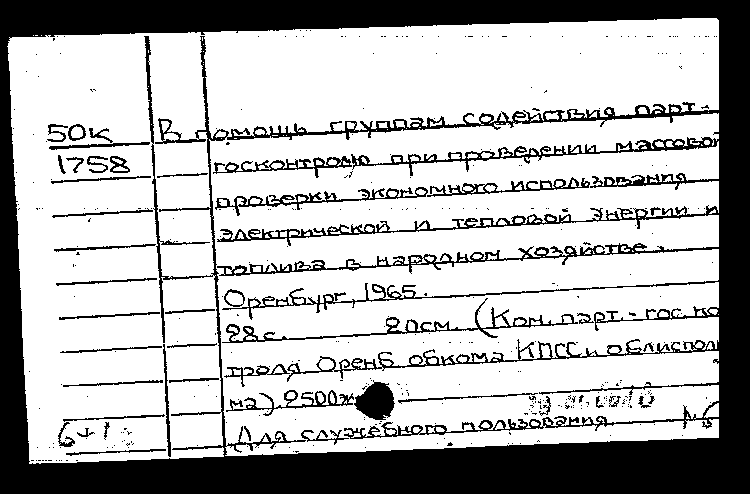 50к В помощь группам содействия парт-
1758 госконтролю при проведении массовой
проверки экономного использования
электрической и тепловой энергии и
топлива в народном хозяйстве.
Оренбург, 1965.
28 с. 20см. (Ком. парт.-гос. ко
троля Оренб обкома КПСС и облиспол
ма). 2500
6+1 Для служебного пользования